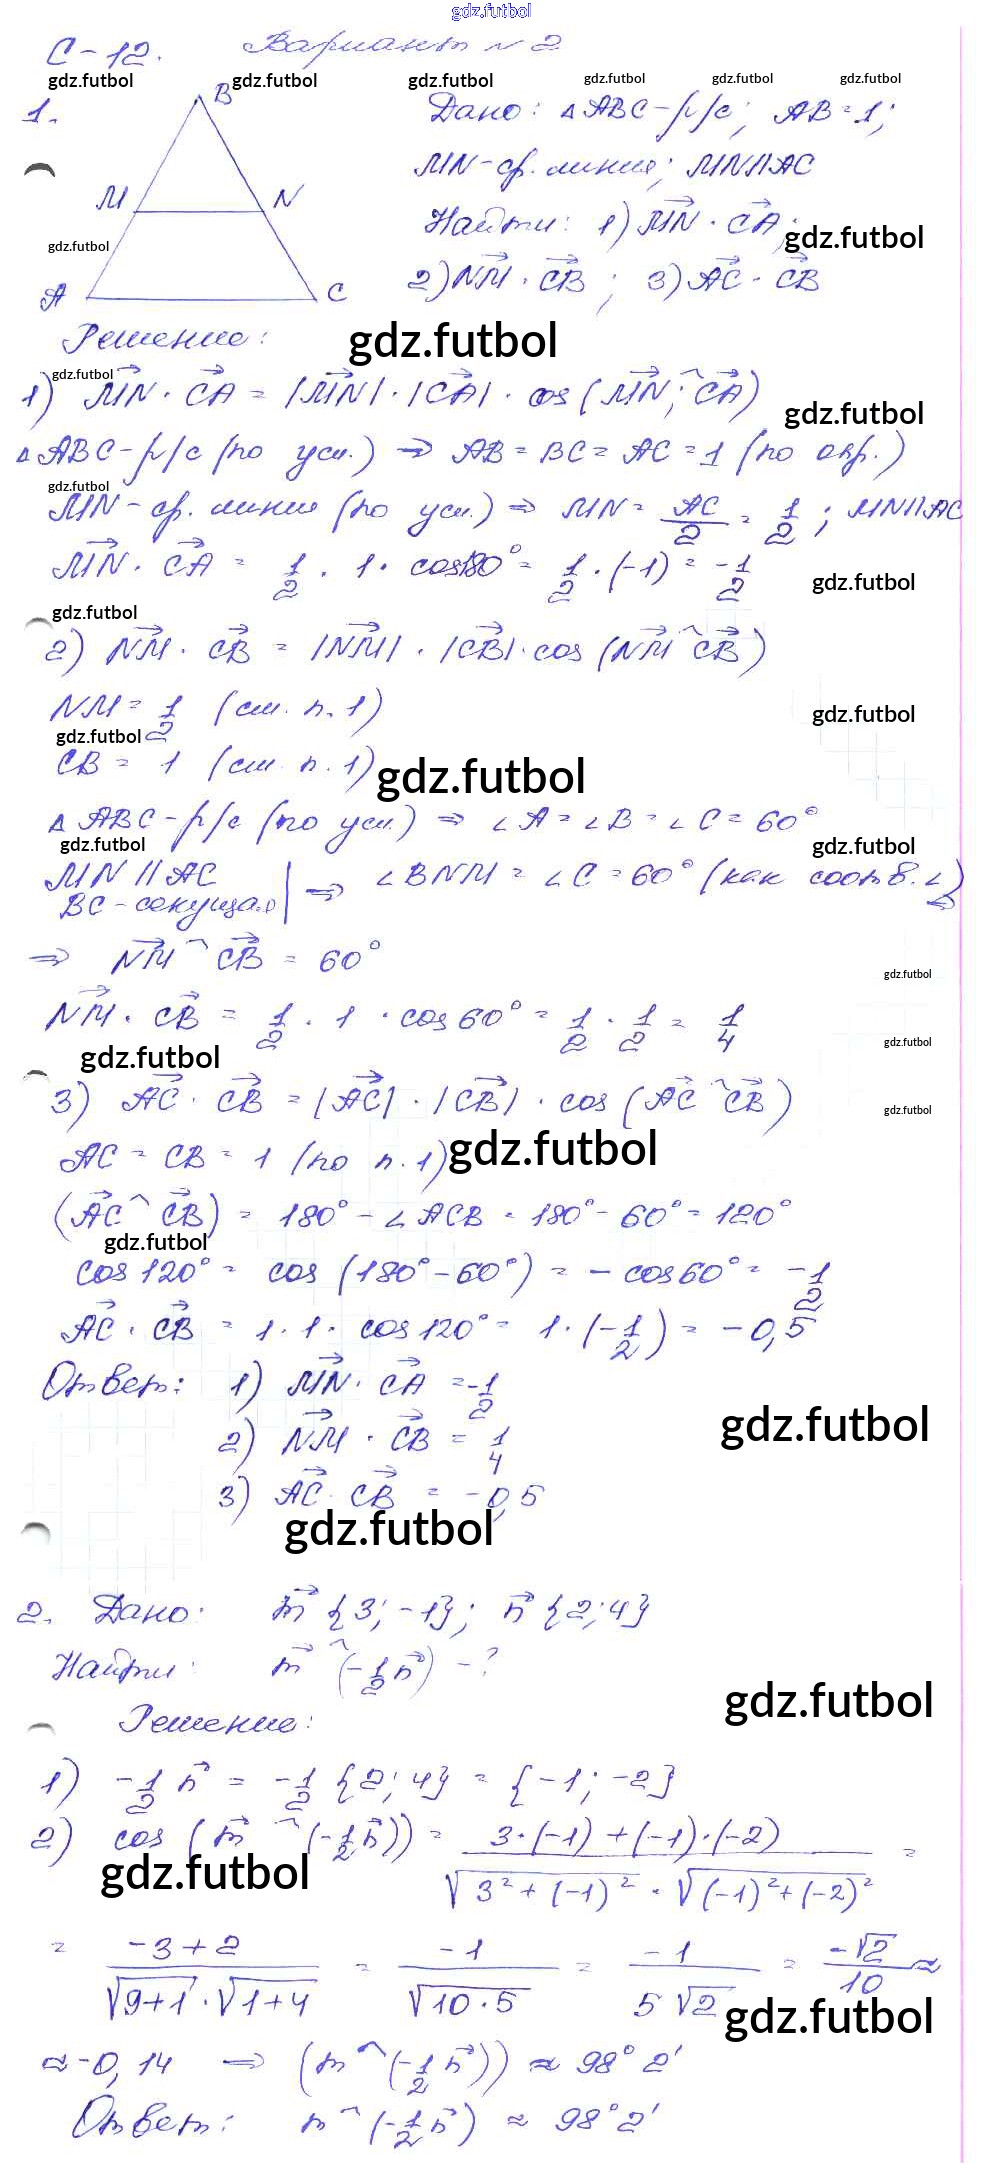 gdz.futbol
С-12. Вариант №2
gdz.futbol gdz.futbol gdz.futbol gdz.futbol gdz.futbol gdz.futbol
1. B M N A C
Дано: △ABC-р/с; AB=1;
MN-ср. линия; MN||AC
Найти: 1) MN⃗ · CA⃗;
gdz.futbol gdz.futbol
2) NM⃗ · CB⃗; 3) AC⃗ · CB⃗
Решение: gdz.futbol
gdz.futbol
1) MN⃗ · CA⃗ = |MN⃗| · |CA⃗| · cos (MN⃗; ^ CA⃗)
gdz.futbol
△ABC-р/с (по усл.) ⇒ AB = BC = AC = 1 (по опр.)
gdz.futbol
MN-ср. линия (по усл.) ⇒ MN = AC/2 = 1/2; MN||AC
MN⃗ · CA⃗ = 1/2 · 1 · cos180° = 1/2 · (-1) = -1/2
gdz.futbol
gdz.futbol
2) NM⃗ · CB⃗ = |NM⃗| · |CB⃗| · cos (NM⃗ ^ CB⃗)
NM = 1/2 (см. п. 1)
gdz.futbol
gdz.futbol
CB = 1 (см. п. 1) gdz.futbol
△ABC-р/с (по усл.) ⇒ ∠A = ∠B = ∠C = 60°
gdz.futbol gdz.futbol
MN || AC
BC-секущая | ⇒ ∠BNM = ∠C = 60° (как соотв. ∠)
⇒ NM⃗ ^ CB⃗ = 60°
gdz.futbol
NM⃗ · CB⃗ = 1/2 · 1 · cos 60° = 1/2 · 1/2 = 1/4
gdz.futbol gdz.futbol
3) AC⃗ · CB⃗ = |AC⃗| · |CB⃗| · cos (AC⃗ ^ CB⃗)
gdz.futbol
AC = CB = 1 (по п. 1) gdz.futbol
(AC⃗ ^ CB⃗) = 180° - ∠ACB = 180° - 60° = 120°
gdz.futbol
cos 120° = cos (180° - 60°) = - cos 60° = -1/2
AC⃗ · CB⃗ = 1 · 1 · cos 120° = 1 · (-1/2) = -0,5
Ответ: 1) MN⃗ · CA⃗ = -1/2
gdz.futbol
2) NM⃗ · CB⃗ = 1/4
3) AC⃗ · CB⃗ = -0,5
gdz.futbol
2. Дано: m⃗ {3; -1}; n⃗ {2; 4}
Найти: m⃗ ^ (-1/2 n⃗) - ?
gdz.futbol
Решение:
1) -1/2 n⃗ = -1/2 {2; 4} = {-1; -2}
2) cos (m⃗ ^ (-1/2 n⃗)) = (3·(-1) + (-1)·(-2)) / (√(3² + (-1)²) · √((-1)² + (-2)²)) =
gdz.futbol
= (-3 + 2) / (√(9+1) · √(1+4)) = -1 / √(10·5) = -1 / (5√2) = -√2 / 10 ≈
gdz.futbol
≈ -0,14 ⇒ (m ^ (-1/2 n⃗)) ≈ 98° 2'
Ответ: m ^ (-1/2 n⃗) ≈ 98° 2'